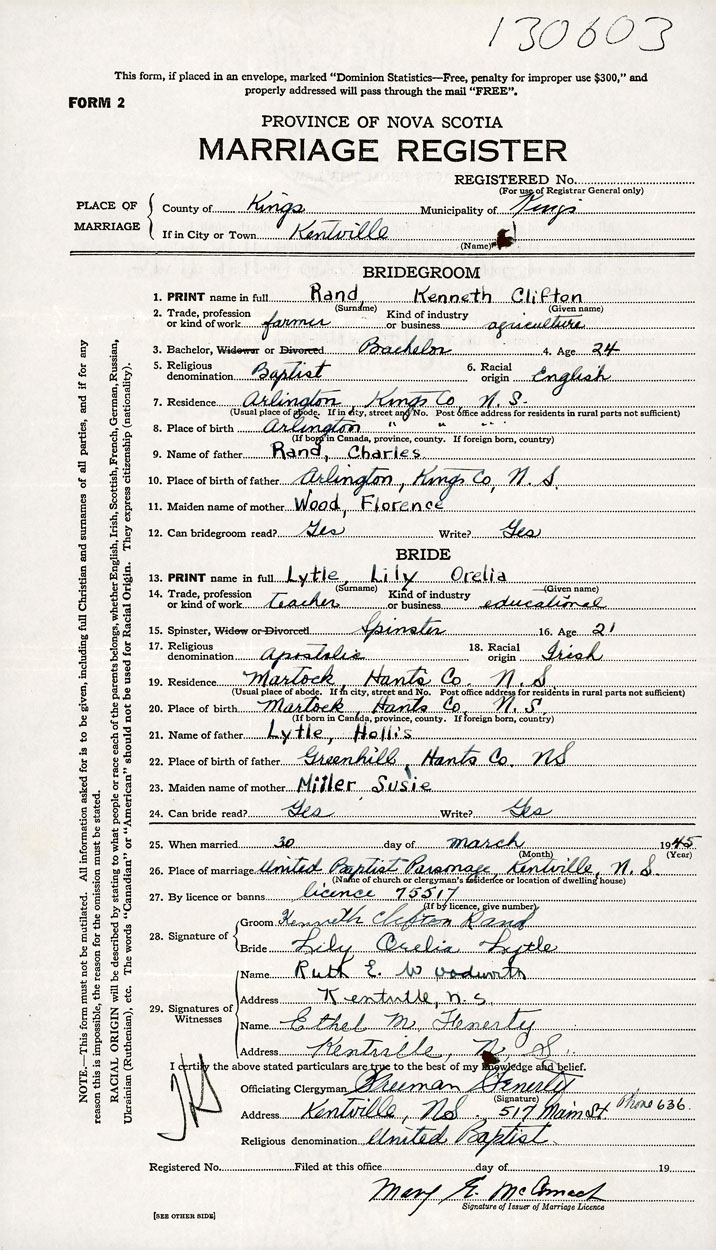 130603
This form, if placed in an envelope, marked "Dominion Statistics—Free, penalty for improper use $300," and
properly addressed will pass through the mail "FREE".
FORM 2
PROVINCE OF NOVA SCOTIA
MARRIAGE REGISTER
REGISTERED No.
(For use of Registrar General only)
PLACE OF MARRIAGE
County of Kings Municipality of Kings
If in City or Town Kentville
(Name)
BRIDEGROOM
1. PRINT name in full Rand, Kenneth Clifton
(Surname) (Given name)
2. Trade, profession or kind of work farmer Kind of industry or business agriculture
3. Bachelor, Widower or Divorced Bachelor 4. Age 24
5. Religious denomination Baptist 6. Racial origin English
7. Residence Arlington, Kings Co, N. S.
(Usual place of abode. If in city, street and No. Post office address for residents in rural parts not sufficient)
8. Place of birth Arlington " " " "
(If born in Canada, province, county. If foreign born, country)
9. Name of father Rand, Charles
10. Place of birth of father Arlington, Kings Co, N. S.
11. Maiden name of mother Wood, Florence
12. Can bridegroom read? Yes Write? Yes
BRIDE
13. PRINT name in full Lytle, Lily Orelia
(Surname) (Given name)
14. Trade, profession or kind of work teacher Kind of industry or business educational
15. Spinster, Widow or Divorced Spinster 16. Age 21
17. Religious denomination Apostolic 18. Racial origin Irish
19. Residence Martock, Hants Co. N. S.
(Usual place of abode. If in city, street and No. Post office address for residents in rural parts not sufficient)
20. Place of birth Martock, Hants Co. N. S.
(If born in Canada, province, county. If foreign born, country)
21. Name of father Lytle, Hollis
22. Place of birth of father Greenhill, Hants Co. NS
23. Maiden name of mother Miller Susie
24. Can bride read? Yes Write? Yes
25. When married 30 day of march 1945
(Month) (Year)
26. Place of marriage United Baptist Parsonage, Kentville, N. S.
(Name of church or clergyman's residence or location of dwelling house)
27. By licence or banns licence 75517
(If by licence, give number)
28. Signature of
Groom Kenneth Clifton Rand
Bride Lily Orelia Lytle
29. Signatures of Witnesses
Name Ruth E. Woodworth
Address Kentville, n. s.
Name Ethel M. Fenerty
Address Kentville, N. S.
I certify the above stated particulars are true to the best of my knowledge and belief.
Officiating Clergyman Freeman Fenerty
(Signature)
Address Kentville, NS. 517 Main St Phone 636.
Religious denomination United Baptist
Registered No. Filed at this office day of 19
Mary E. McCormack
Signature of Issuer of Marriage Licence
[SEE OTHER SIDE]
NOTE.—This form must not be mutilated. All information asked for is to be given, including full Christian and surnames of all parties, and if for any
reason this is impossible, the reason for the omission must be stated.
RACIAL ORIGIN will be described by stating to what people or race each of the parents belongs, whether English, Irish, Scottish, French, German, Russian,
Ukrainian (Ruthenian), etc. The words "Canadian" or "American" should not be used for Racial Origin. They express citizenship (nationality).